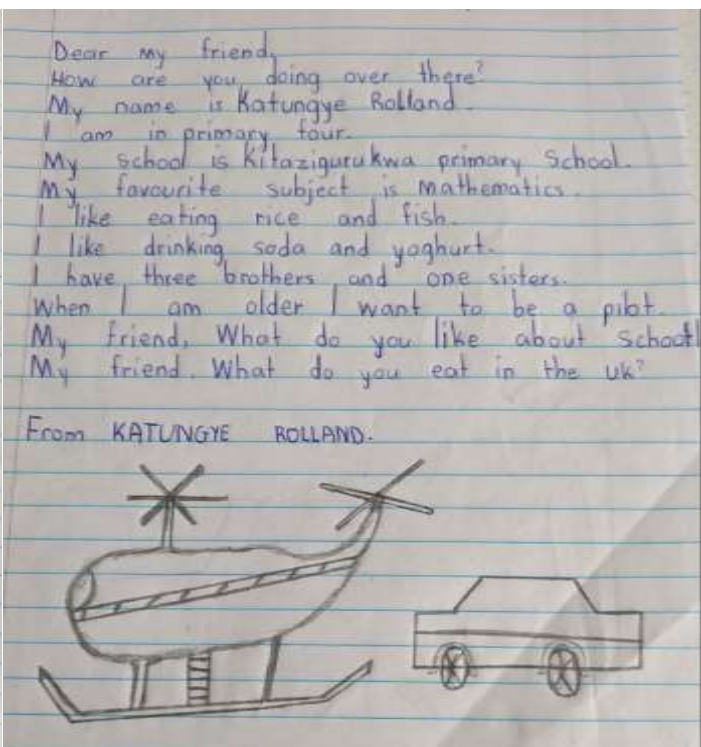 Dear my friend,
How are you doing over there?
My name is Katungye Rolland.
I am in primary four.
My school is Kitazigurukwa primary School.
My favourite subject is Mathematics.
I like eating rice and fish.
I like drinking soda and yoghurt.
I have three brothers and one sisters.
When I am older I want to be a pilot.
My friend, What do you like about School
My friend. What do you eat in the UK?
From KATUNGYE ROLLAND.